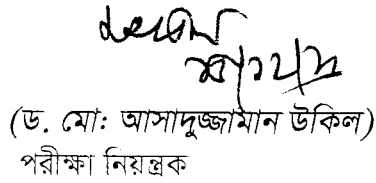 (ড. মো: আসাদুজ্জামান উকিল)
পরীক্ষা নিয়ন্ত্রক